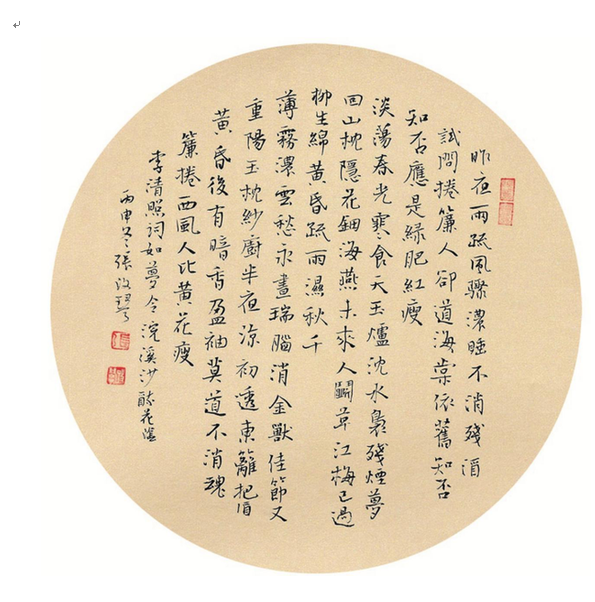 昨夜雨疏風驟濃睡不消殘酒
試問捲簾人卻道海棠依舊知否
知否應是綠肥紅瘦
淡蕩春光寒食天玉爐沈水裊殘煙夢
回山枕隱花鈿海燕未來人鬭草江梅已過
柳生綿黃昏疏雨濕秋千
薄霧濃雲愁永晝瑞腦消金獸佳節又
重陽玉枕紗廚半夜涼初透東籬把酒
黃昏後有暗香盈袖莫道不消魂
簾捲西風人比黃花瘦
李清照詞如夢令浣溪沙醉花陰
丙申冬張